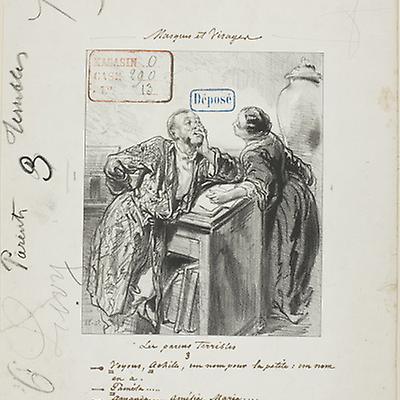 Masques et Visages
MAGASIN. O
CASE 290
Nº 13
Déposé
Parents Terribles
3
Les parens terribles
3
— Voyons, Achile, un nom pour la petite : un nom
en a.
— Paméla.....
— Amanda.... Amélia. Maria....